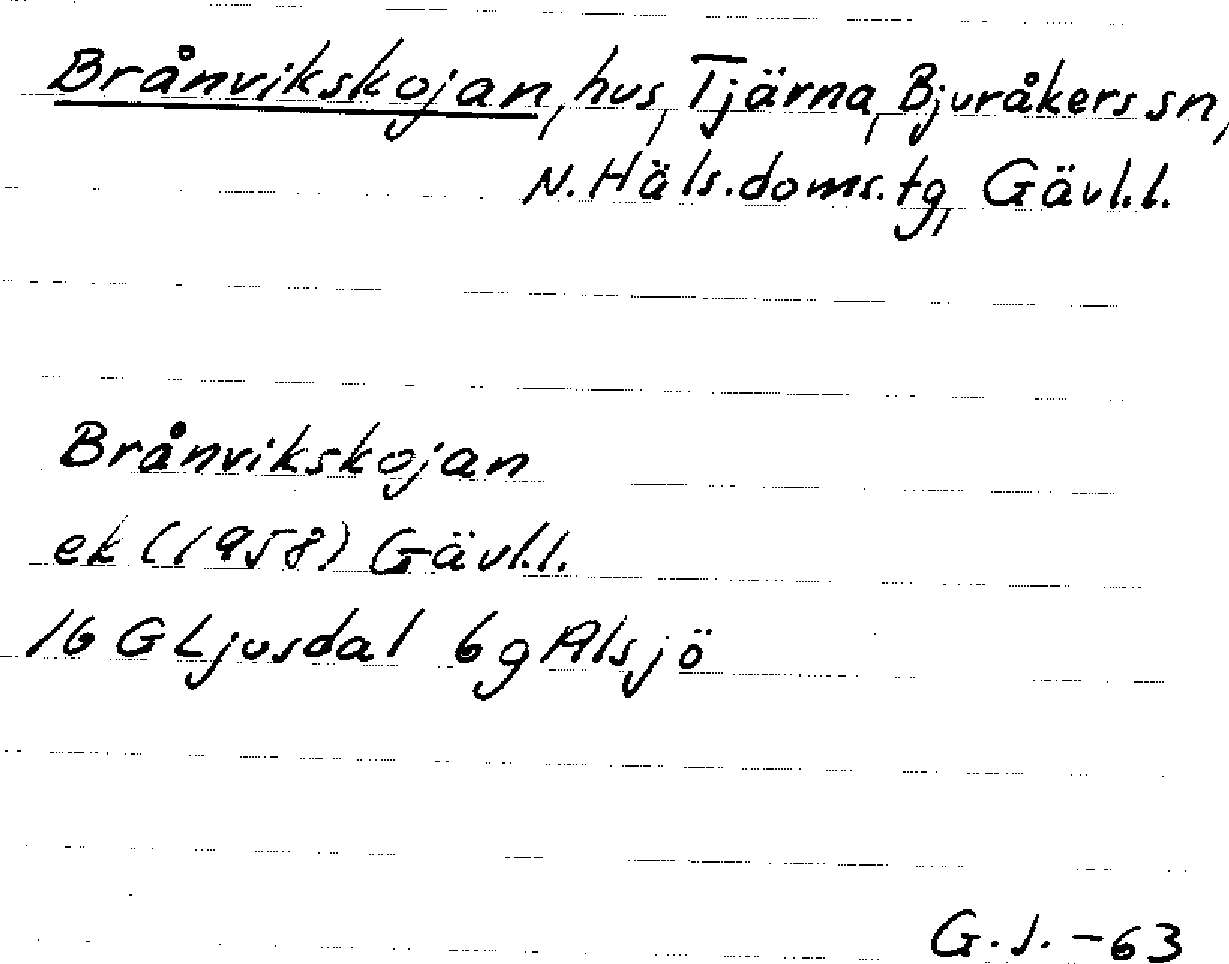 Brånvikskojan, hus, Tjärna, Bjuråkers sn,
N. Häls. doms. tg, Gävl.l.
Brånvikskojan
ek (1958) Gävl.l.
16 G Ljusdal 6g Alsjö
G.J. -63